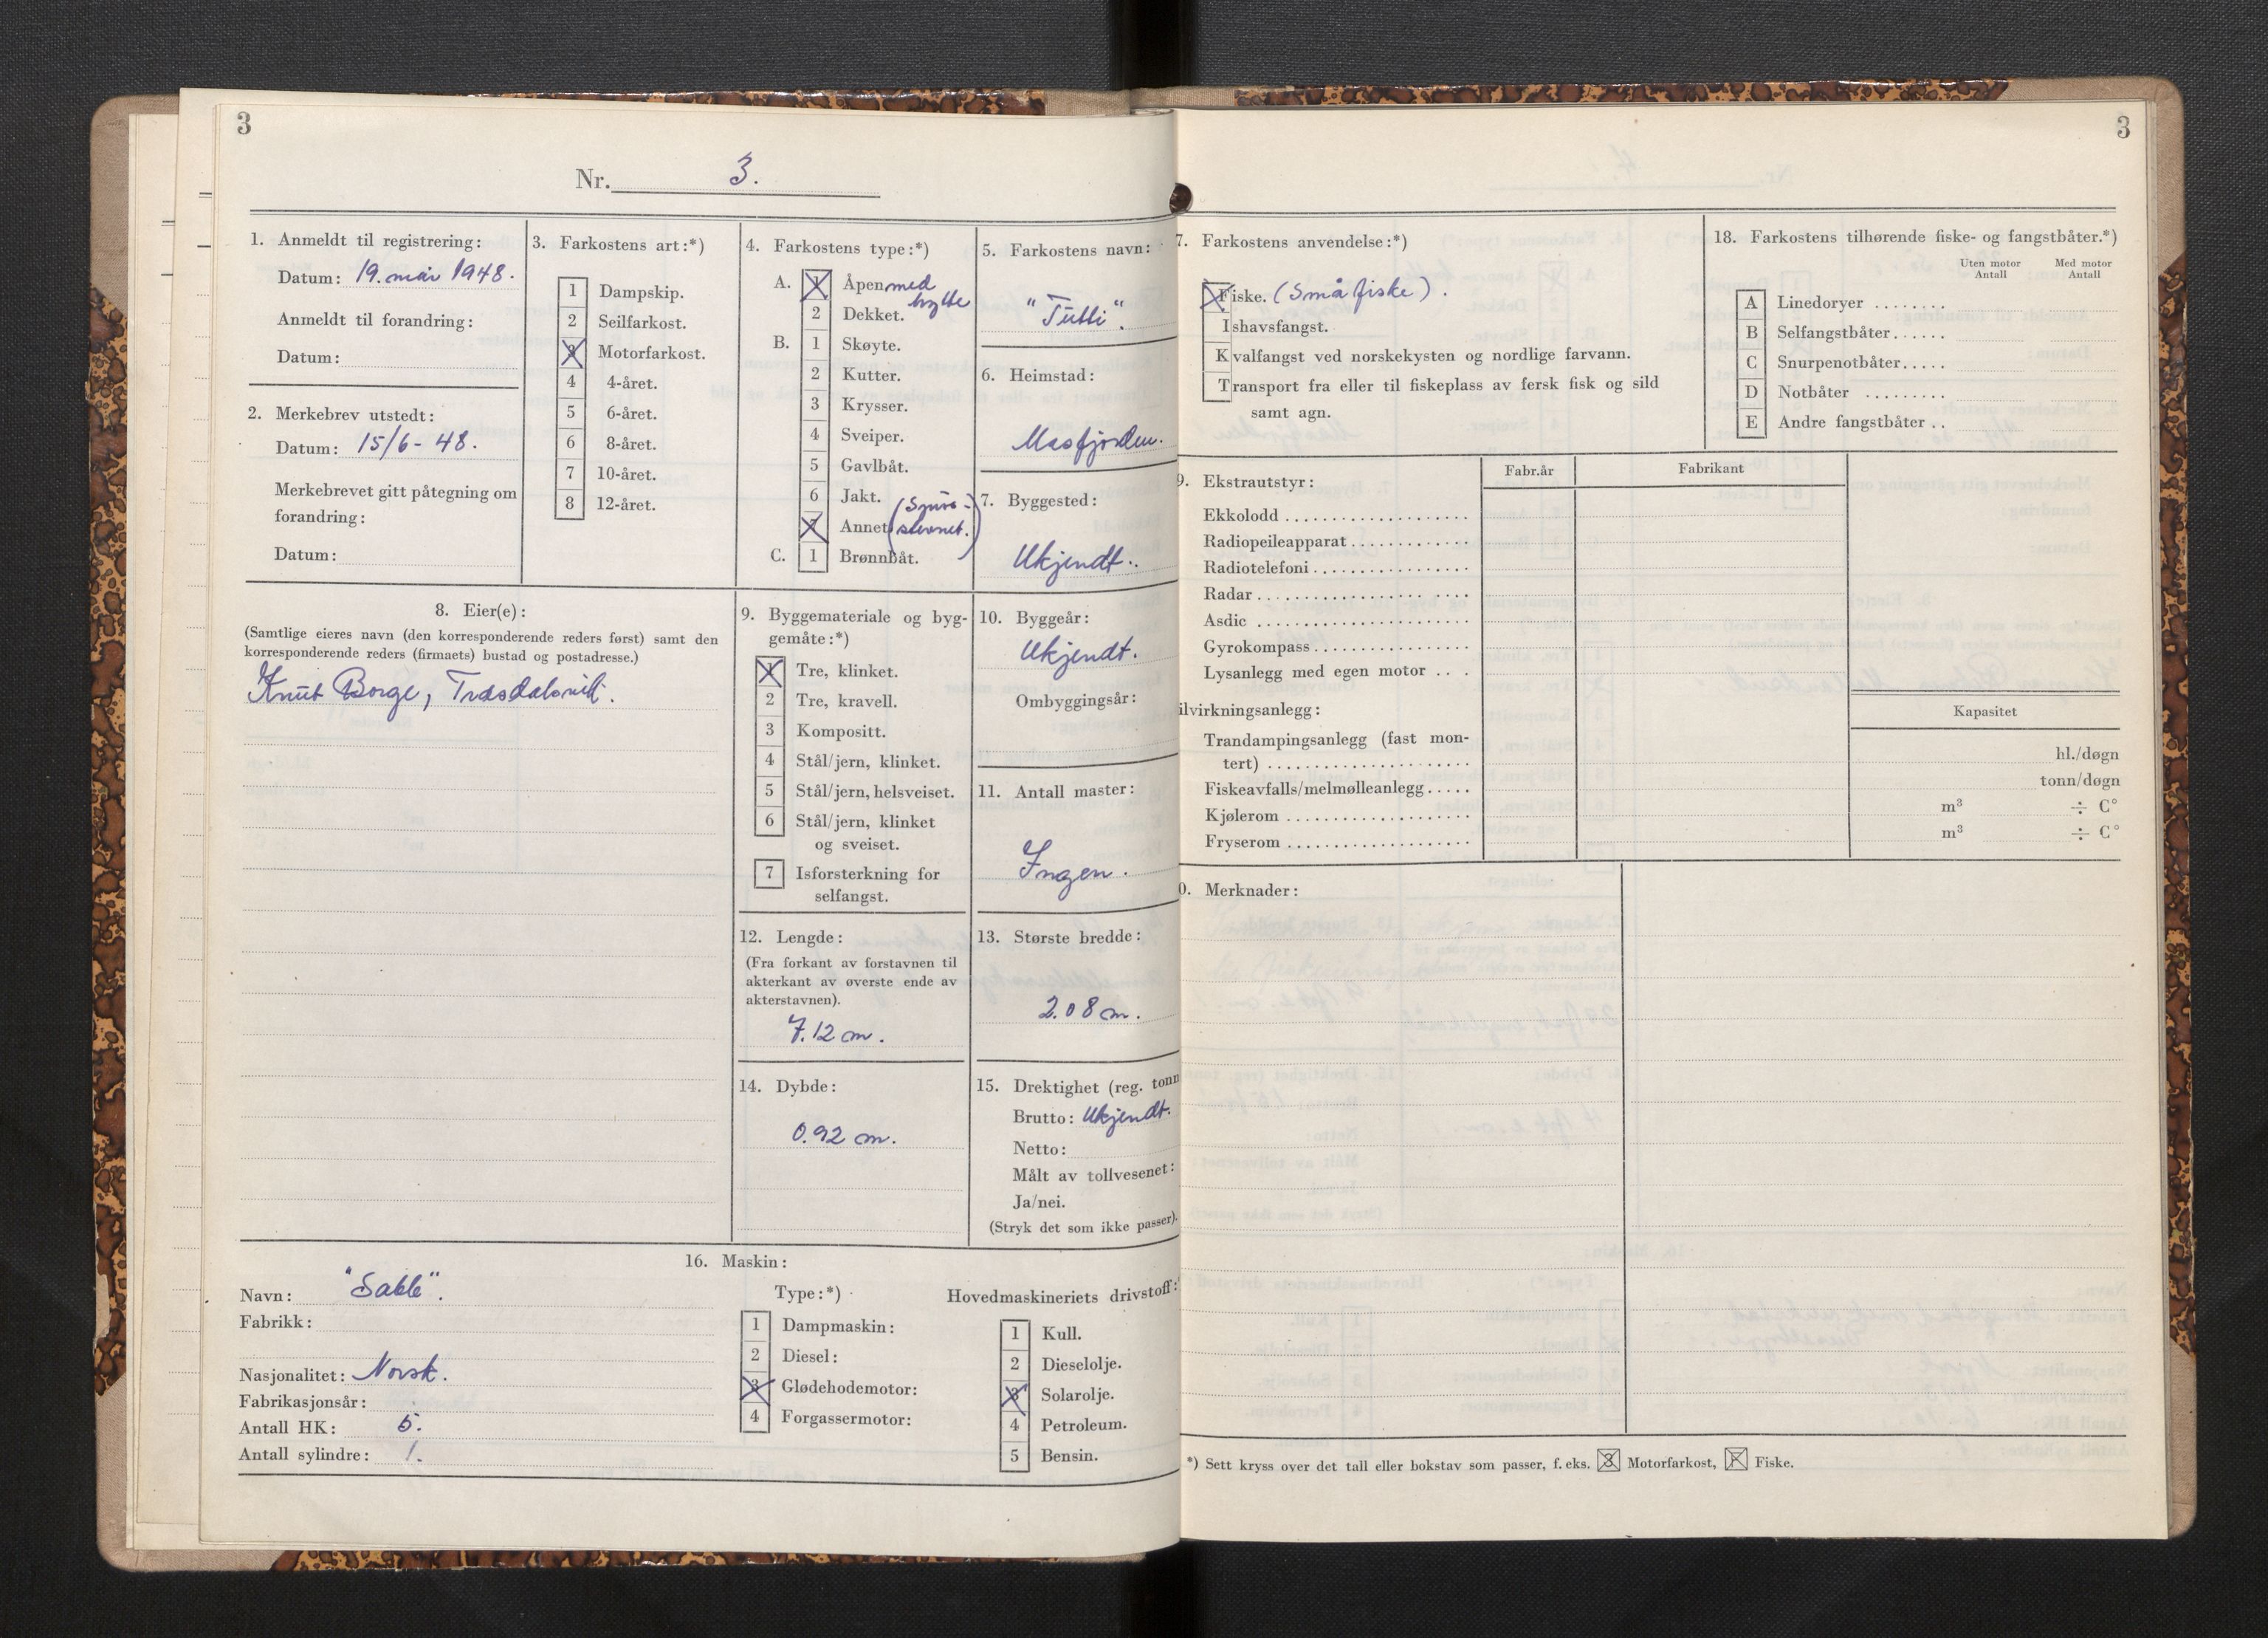 3
Nr. 3.
1. Anmeldt til registrering:
Datum: 19. mai 1948.
Anmeldt til forandring:
Datum:
2. Merkebrev utstedt:
Datum: 15/6-48.
Merkebrevet gitt påtegning om
forandring:
Datum:
3. Farkostens art:*)
1 Dampskip.
2 Seilfarkost.
3 Motorfarkost.
4 4-året.
5 6-året.
6 8-året.
7 10-året.
8 12-året.
4. Farkostens type:*)
A. 1 Åpen med
hytte
2 Dekket.
B. 1 Skøyte.
2 Kutter.
3 Krysser.
4 Sveiper.
5 Gavlbåt.
6 Jakt.
7 Annet
C. 1 Brønnbåt.
5. Farkostens navn:
6. Heimstad:
Masfjorden.
7. Byggested:
Ukjendt.
8. Eier(e):
(Samtlige eieres navn (den korresponderende reders først) samt den
korresponderende reders (firmaets) bustad og postadresse.)
Knut Borge,
9. Byggemateriale og byg-
gemåte:*)
1 Tre, klinket.
2 Tre, kravell.
3 Kompositt.
4 Stål/jern, klinket.
5 Stål/jern, helsveiset.
6 Stål/jern, klinket
og sveiset.
7 Isforsterkning for
selfangst.
10. Byggeår:
Ukjendt.
Ombyggingsår:
11. Antall master:
Ingen.
12. Lengde:
(Fra forkant av forstavnen til
akterkant av øverste ende av
akterstavnen).
7.12 m.
13. Største bredde:
2.08 m.
14. Dybde:
0.92 m.
15. Drektighet (reg. tonn
Brutto: Ukjendt.
Netto:
Målt av tollvesenet:
Ja/nei.
(Stryk det som ikke passer).
16. Maskin:
Navn: "Sabb".
Fabrikk:
Nasjonalitet: Norsk.
Fabrikasjonsår:
Antall HK: 5.
Antall sylindre: 1.
Type:*)
1 Dampmaskin:
2 Diesel:
3 Glødehodemotor:
4 Forgassermotor:
Hovedmaskineriets drivstoff:
1 Kull.
2 Dieselolje.
3 Solarolje.
4 Petroleum.
5 Bensin.
3
7. Farkostens anvendelse:*)
Fiske. (Småfiske).
Ishavsfangst.
Kvalfangst ved norskekysten og nordlige farvann.
Transport fra eller til fiskeplass av fersk fisk og sild
samt agn.
18. Farkostens tilhørende fiske- og fangstbåter.*)
Uten motor Med motor
Antall Antall
A Linedoryer
B Selfangstbåter
C Snurpenotbåter
D Notbåter
E Andre fangstbåter
9. Ekstrautstyr:
Fabr.år Fabrikant
Ekkolodd
Radiopeileapparat
Radiotelefoni
Radar
Asdic
Gyrokompass
Lysanlegg med egen motor
ilvirkningsanlegg:
Kapasitet
Trandampingsanlegg (fast mon-
tert) hl./døgn
Fiskeavfalls/melmølleanlegg tonn/døgn
Kjølerom m³ ÷ C°
Fryserom m³ ÷ C°
0. Merknader:
*) Sett kryss over det tall eller bokstav som passer, f. eks. 3 Motorfarkost, F Fiske.